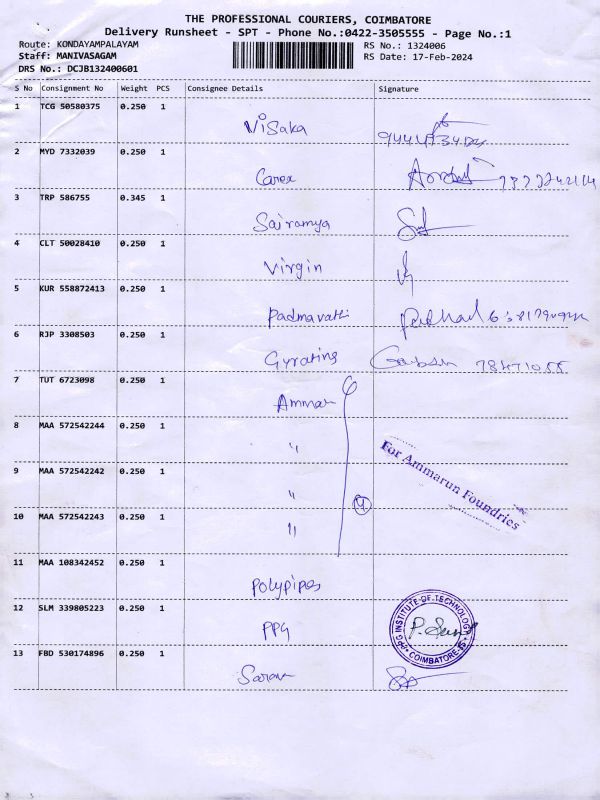 THE PROFESSIONAL COURIERS, COIMBATORE
Delivery Runsheet - SPT - Phone No.:0422-3505555 - Page No.:1
Route: KONDAYAMPALAYAM RS No.: 1324006
Staff: MANIVASAGAM RS Date: 17-Feb-2024
DRS No.: DCJB132400601
S No Consignment No Weight PCS Consignee Details Signature
1 TCG 50580375 0.250 1 Visaka
2 MYD 7332039 0.250 1 Carex
3 TRP 586755 0.345 1 Sairamya
4 CLT 50028410 0.250 1 Virgin
5 KUR 558872413 0.250 1 Padmavathi
6 RJP 3308503 0.250 1 Gyrating
7 TUT 6723098 0.250 1 Ammar
8 MAA 572542244 0.250 1 "
9 MAA 572542242 0.250 1 "
10 MAA 572542243 0.250 1 "
For Ammarun Foundries
11 MAA 108342452 0.250 1 Polypipes
12 SLM 339805223 0.250 1 PPG
PPG INSTITUTE OF TECHNOLOGY
COIMBATORE
13 FBD 530174896 0.250 1 Saran